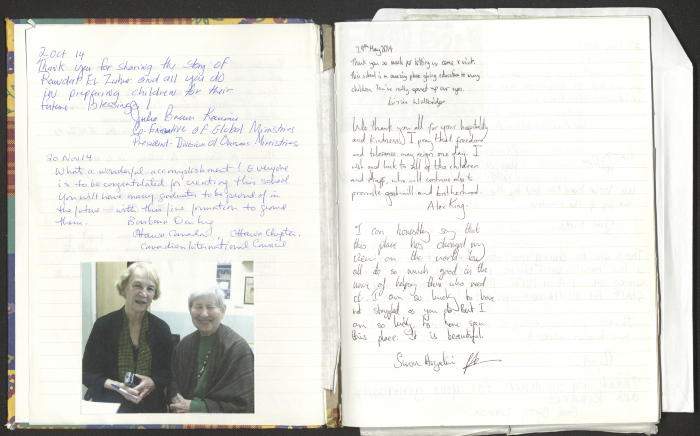 2 Oct 14
Thank you for sharing the story of
Rawdat El Zuhur and all you do
in preparing children for their
future. Blessings!
Julia Brown Karimu
Co-Executive of Global Ministries
President - Division of Overseas Ministries
20 Nov 14
What a wonderful accomplishment! Everyone
is to be congratulated for creating this school
You will have many graduates to be proud of in
the future - with this fine formation to ground
them. Barbara
Ottawa Canada, Ottawa Chapter,
Canadian International Council
29th May 2014
Thank you so much for letting us come & visit.
This school is an amazing place giving education to many
children. You've really opened up our eyes.
We thank you all for your hospitality
and kindness. I pray that freedom
and tolerance may reign one day. I
wish good luck to all of the children
and staff, who will continue also to
promote goodwill and brotherhood.
Alex King.
I can honestly say that
this place has changed my
view on the world. You
all do so much good in the
way of helping those who need
it. I am so lucky to have
not struggled as you do. But I
am so lucky to have seen
this place. It is beautiful.